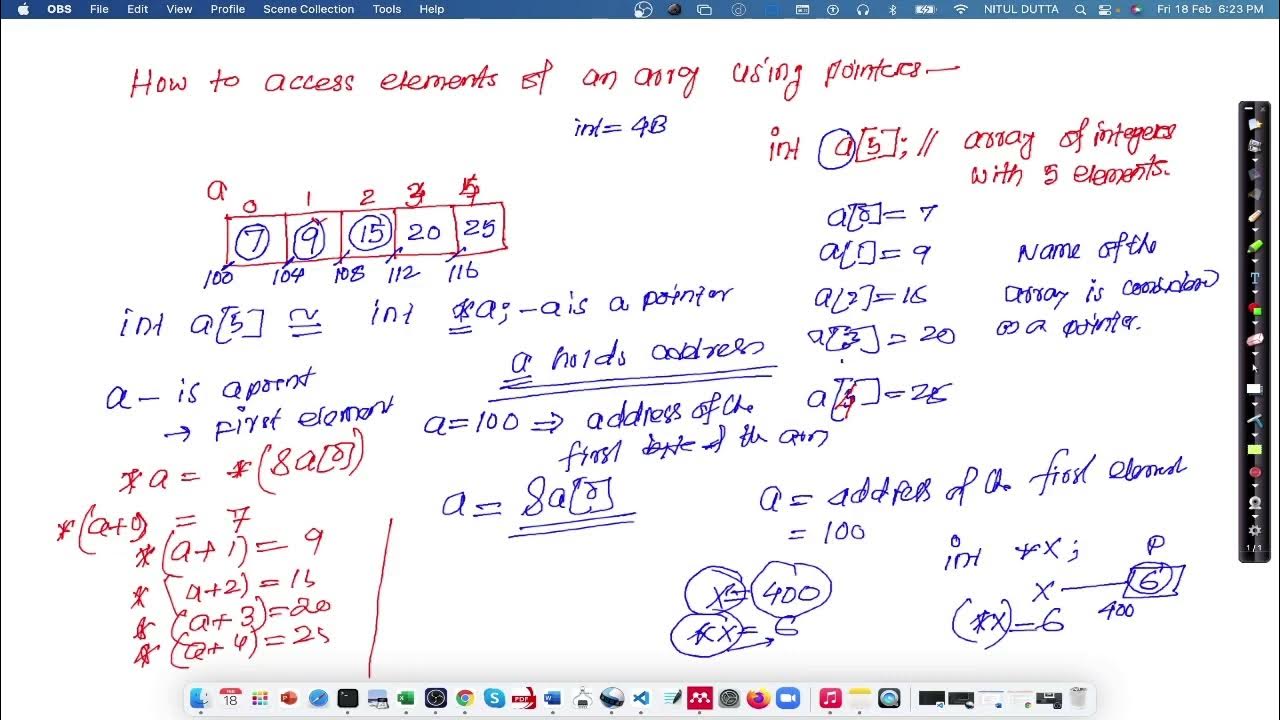 OBS File Edit View Docks Profile Scene Collection Tools Help NITUL DUTTA Fri 18 Feb 6:23 PM
How to access elements of an array using pointers—
int = 4B
int a[5]; // array of integers
with 5 elements.
a 0 1 2 3 4
7 9 15 20 25
100 104 108 112 116
a[0] = 7
a[1] = 9
a[2] = 15
a[3] = 20
a[4] = 25
Name of the
array is considered
as a pointer.
int a[5] ≅ int *a; - a is a pointer
a holds address
a - is a point
→ first element
a = 100 ⇒ address of the
first of the arr
*a = *(&a[0])
a = &a[0]
a = address of the first element
= 100
*(a+0) = 7
*(a+1) = 9
*(a+2) = 15
*(a+3) = 20
*(a+4) = 25
x = 400
*x = 6
int *x;
P
x 6
400
(*x) = 6
1/1
FEB
18
PDF